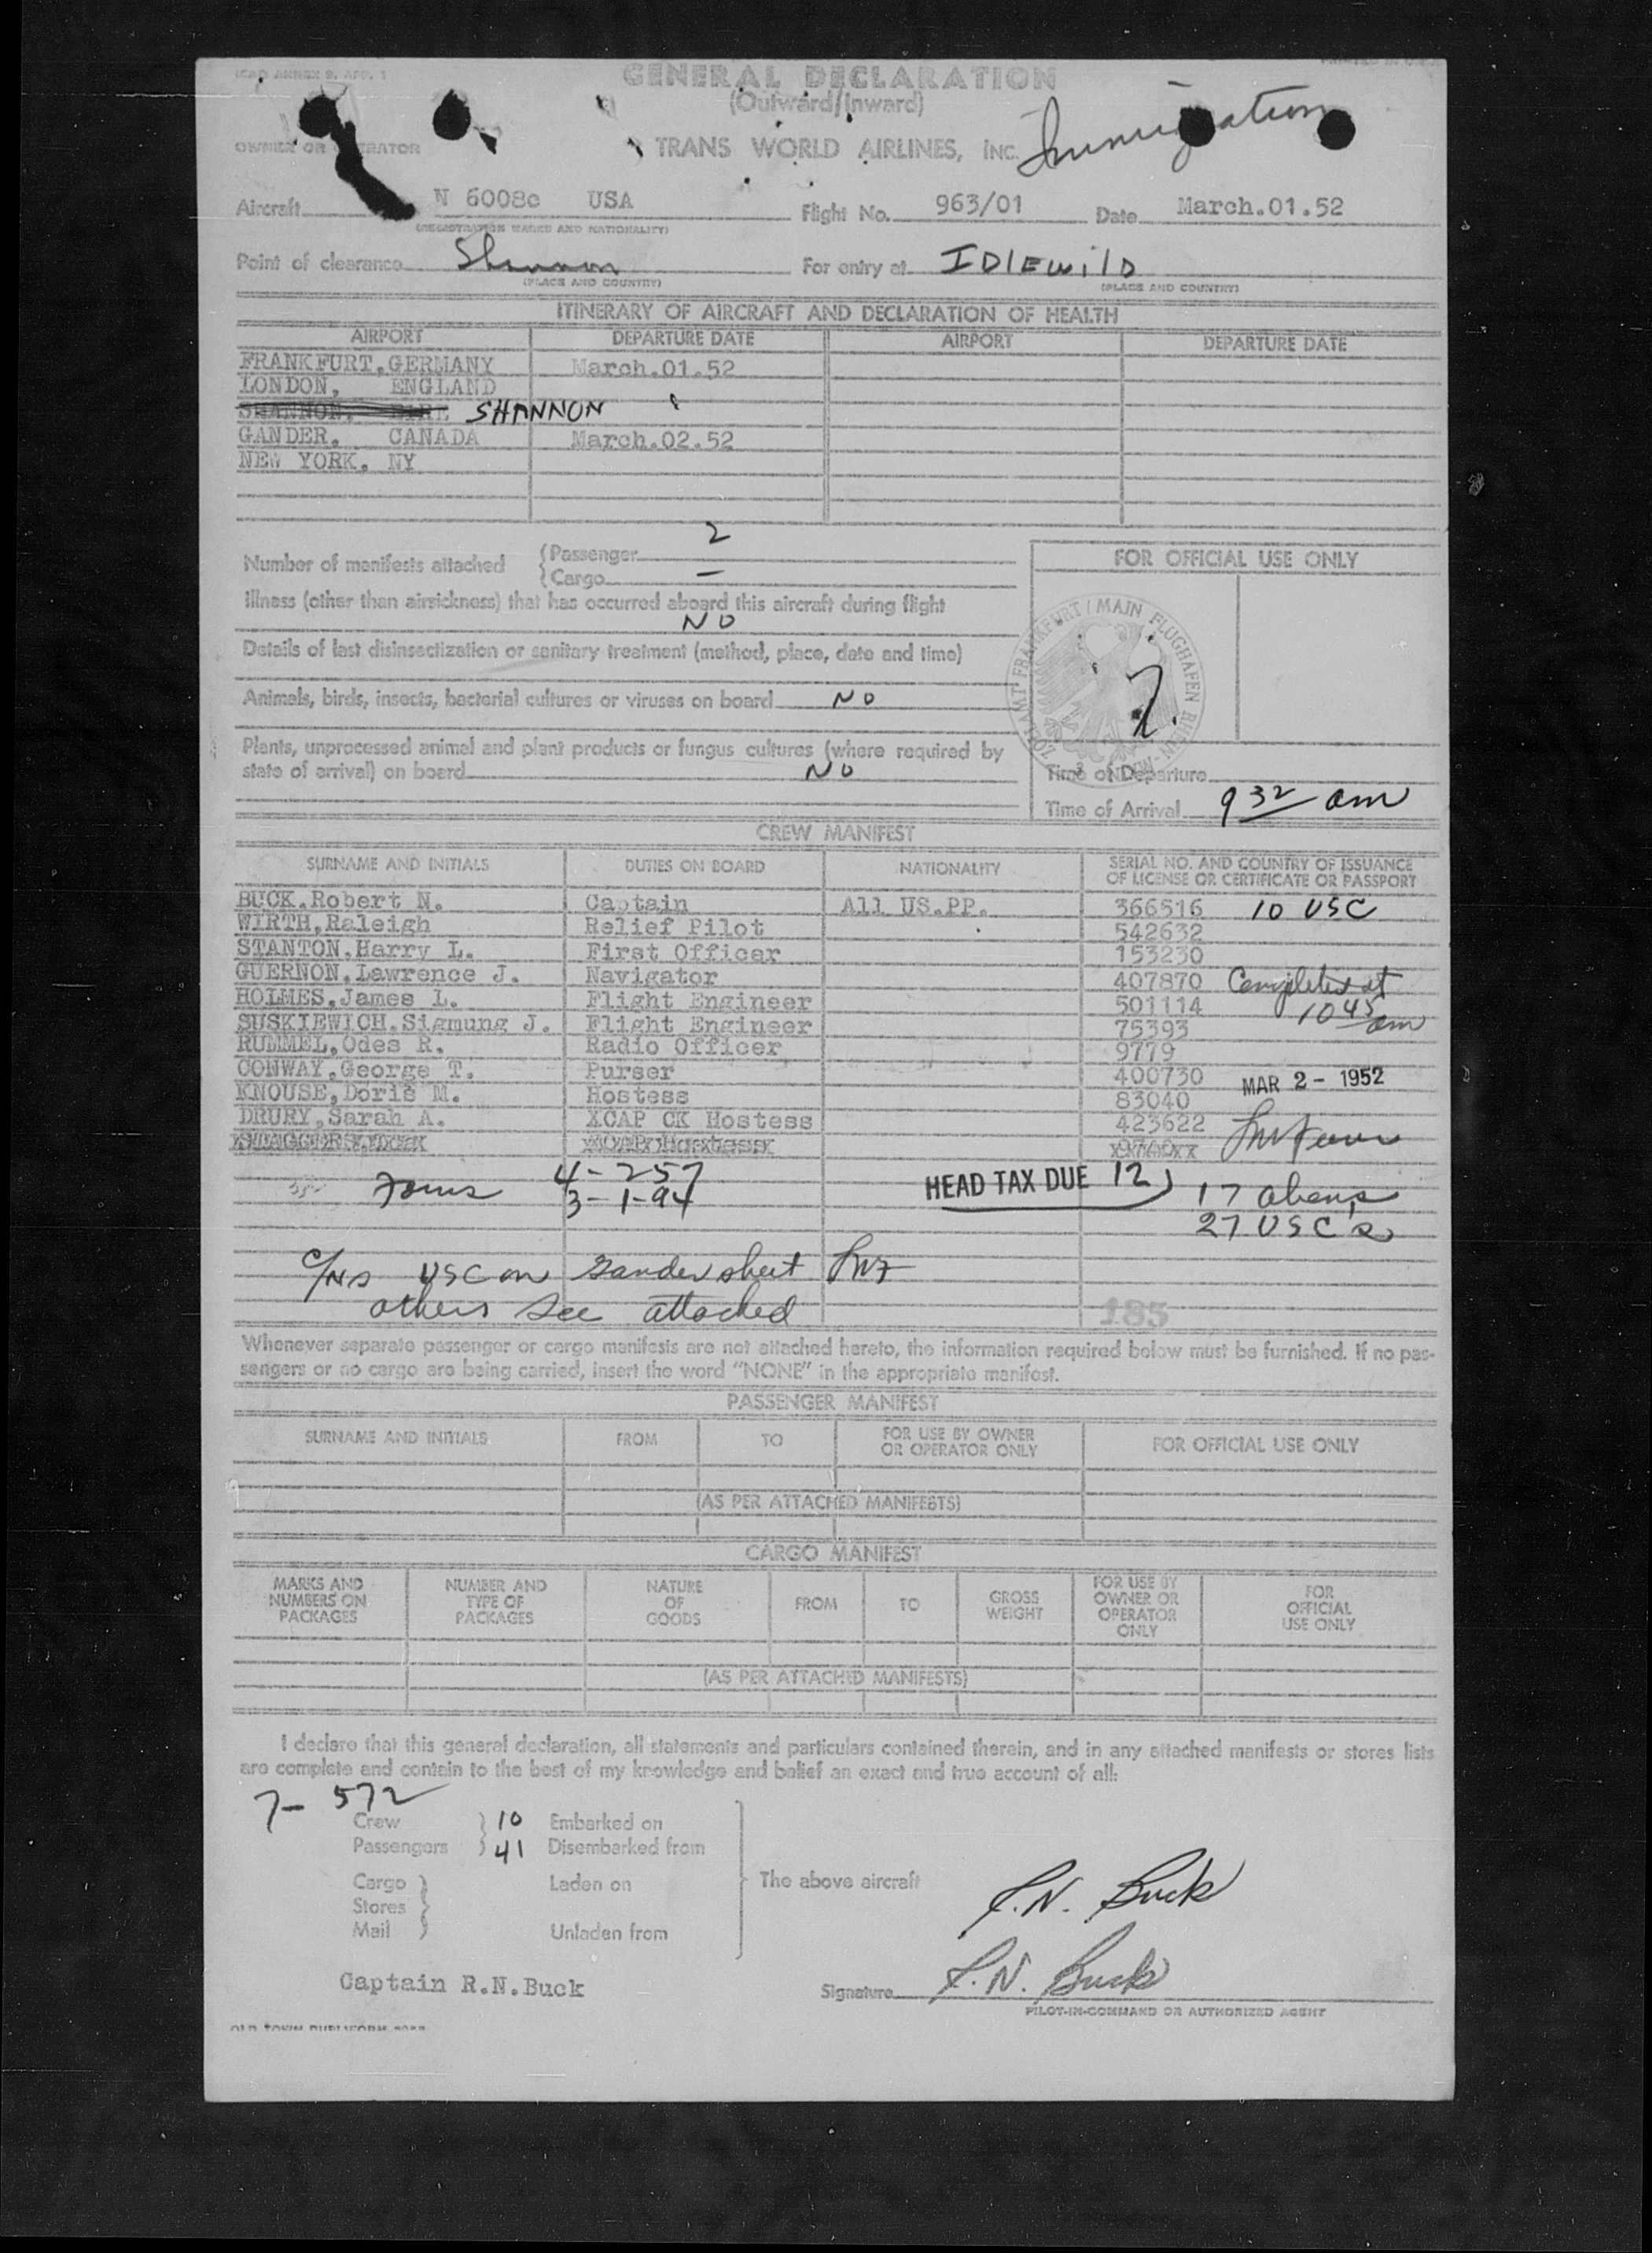 ICAO ANNEX 9. APP. 1
GENERAL DECLARATION
(Outward/Inward)
Immigration
OWNER OR OPERATOR
TRANS WORLD AIRLINES, INC.
Aircraft N 6008c USA Flight No. 963/01 Date March.01.52
(REGISTRATION MARKS AND NATIONALITY)
Point of clearance Shannon For entry at IDLEWILD
(PLACE AND COUNTRY) (PLACE AND COUNTRY)
ITINERARY OF AIRCRAFT AND DECLARATION OF HEALTH
AIRPORT DEPARTURE DATE AIRPORT DEPARTURE DATE
FRANKFURT,GERMANY March.01.52
LONDON, ENGLAND
SHANNON, EIRE SHANNON
GANDER, CANADA March.02.52
NEW YORK, NY
Number of manifests attached Passenger 2
Cargo —
FOR OFFICIAL USE ONLY
Illness (other than airsickness) that has occurred aboard this aircraft during flight
NO
Details of last disinsectization or sanitary treatment (method, place, date and time)
ZOLLAMT FRANKFURT/MAIN FLUGHAFEN RHEIN-MAIN
Animals, birds, insects, bacterial cultures or viruses on board NO
Plants, unprocessed animal and plant products or fungus cultures (where required by
state of arrival) on board NO
Time of Departure
Time of Arrival 9 32 am
CREW MANIFEST
SURNAME AND INITIALS DUTIES ON BOARD NATIONALITY SERIAL NO. AND COUNTRY OF ISSUANCE
OF LICENSE OR CERTIFICATE OR PASSPORT
BUCK,Robert N. Captain All US.PP. 366516 10 USC
WIRTH,Raleigh Relief Pilot 542632
STANTON,Harry L. First Officer 153230
GUERNON,Lawrence J. Navigator 407870 Completed at
HOLMES,James L. Flight Engineer 501114 10 45 am
SUSKIEWICH,Sigmung J. Flight Engineer 75393
RUMMEL,Odes R. Radio Officer 9779
CONWAY,George T. Purser 400730 MAR 2 - 1952
KNOUSE,Doris M. Hostess 83040
DRURY,Sarah A. XCAP CK Hostess 423622
Forms 4-257
3-1-94
HEAD TAX DUE 12
17 aliens
27 USC's
C/Ns USC on Gander sheet
others see attached
185
Whenever separate passenger or cargo manifests are not attached hereto, the information required below must be furnished. If no pas-
sengers or no cargo are being carried, insert the word "NONE" in the appropriate manifest.
PASSENGER MANIFEST
SURNAME AND INITIALS FROM TO FOR USE BY OWNER OR OPERATOR ONLY FOR OFFICIAL USE ONLY
(AS PER ATTACHED MANIFESTS)
CARGO MANIFEST
MARKS AND NUMBERS ON PACKAGES NUMBER AND TYPE OF PACKAGES NATURE OF GOODS FROM TO GROSS WEIGHT FOR USE BY OWNER OR OPERATOR ONLY FOR OFFICIAL USE ONLY
(AS PER ATTACHED MANIFESTS)
I declare that this general declaration, all statements and particulars contained therein, and in any attached manifests or stores lists
are complete and contain to the best of my knowledge and belief an exact and true account of all:
7- 572
Crew 10 Embarked on
Passengers 41 Disembarked from
Cargo Laden on The above aircraft
Stores
R.N. Buck
Mail Unladen from
Captain R.N.Buck
Signature R.N. Buck
PILOT-IN-COMMAND OR AUTHORIZED AGENT